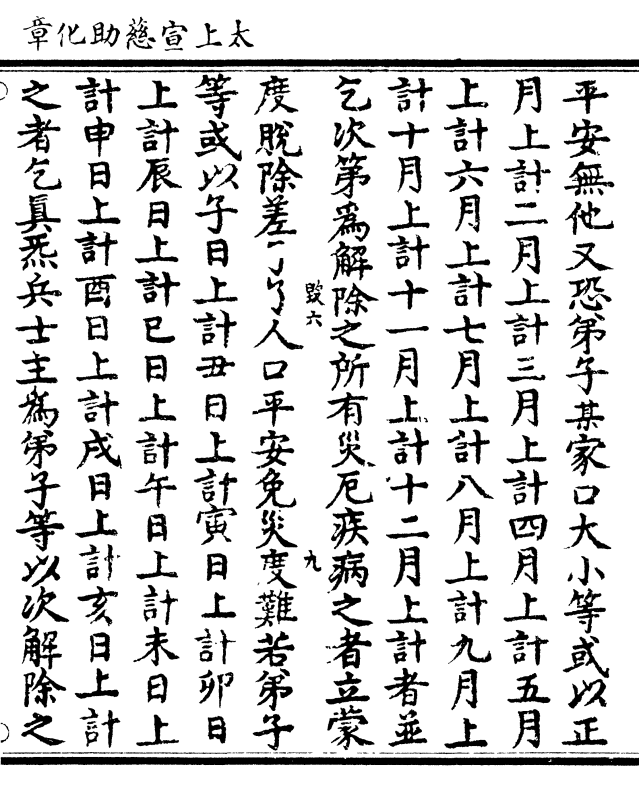 太上宣慈助化章
平安無他又恐弟子某家口大小等或以正
月上計二月上計三月上計四月上計五月
上計六月上計七月上計八月上計九月上
計十月上計十一月上計十二月上計者並
乞次第爲解除之所有災厄疾病之者立蒙
毀六
九
度脫除差了了人口平安免災度難若弟子
等或以子日上計丑日上計寅日上計卯日
上計辰日上計巳日上計午日上計未日上
計申日上計酉日上計戌日上計亥日上計
之者乞眞炁兵士主爲弟子等以次解除之